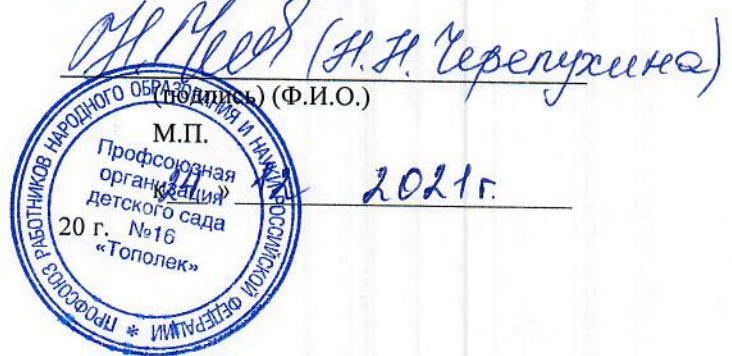 (Н.Н. Черепухина)
(подпись) (Ф.И.О.)
М.П.
« 24 » 12 2021г.
20 г.
ПРОФСОЮЗ РАБОТНИКОВ НАРОДНОГО ОБРАЗОВАНИЯ И НАУКИ РОССИЙСКОЙ ФЕДЕРАЦИИ *
Профсоюзная
организация
детского сада
№16
«Тополек»